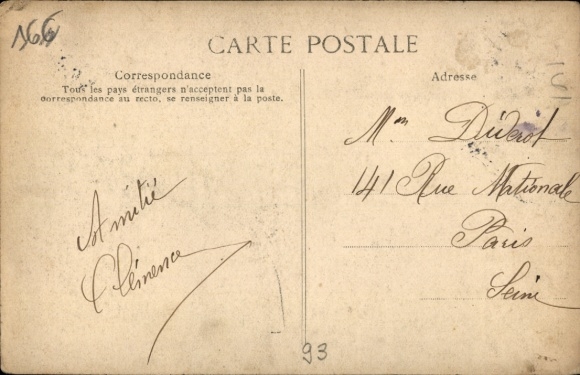 166
CARTE POSTALE
Correspondance
Tous les pays étrangers n'acceptent pas la
correspondance au recto, se renseigner à la poste.
Adresse
Mme Diderot
141 Rue Nationale
Paris
Seine
Amitié
Clémence
93